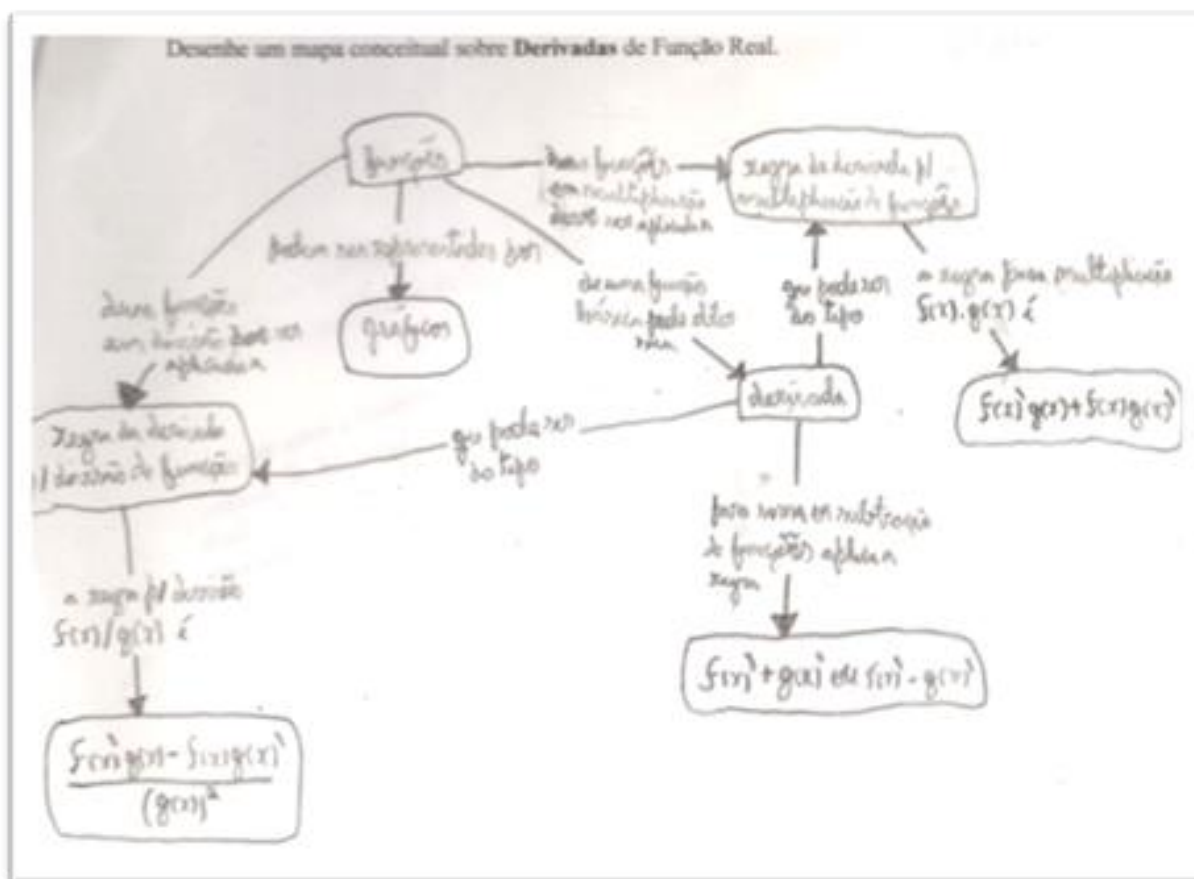 Desenhe um mapa conceitual sobre Derivadas de Função Real.
funções
duas funções
em multiplicação
deve ser aplicadas
regra da derivada p/
multiplicação de funções
podem ser representadas por
gráficos
duas funções
em divisão deve ser
aplicadas
de uma função
pode
que pode ser
do tipo
a regra para multiplicação
f(x).g(x) é
f(x)'g(x)+f(x)g(x)'
derivada
que pode ser
do tipo
regra da derivada
p/ divisão de função
para soma ou subtração
de funções aplica a
regra
f(x)'+g(x)' ou f(x)'-g(x)'
a regra p/ divisão
f(x)/g(x) é
f(x)'g(x)-f(x)g(x)'
(g(x))²